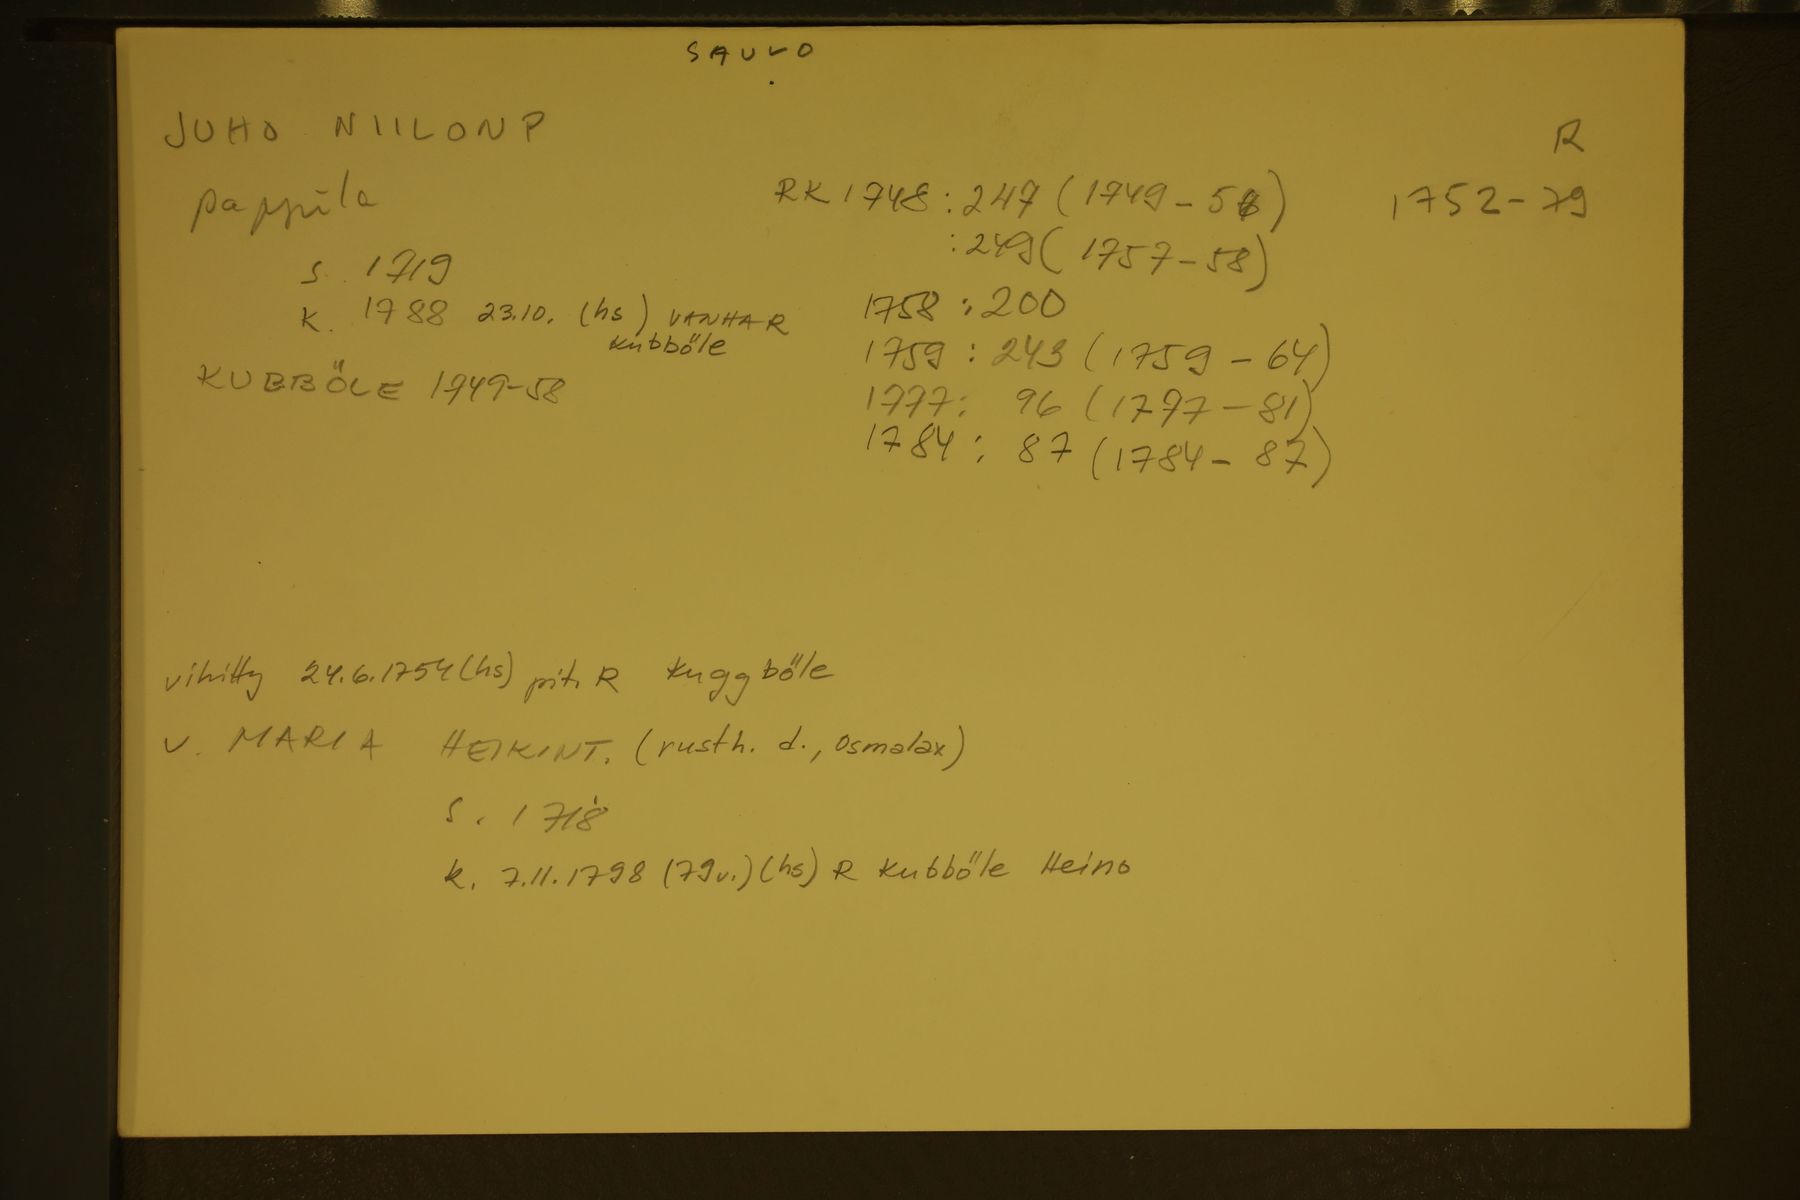 SAUVO
JUHO NIILONP
R
pappila
RK 1748 : 247 (1749-56)
1752-79
: 249 (1757-58)
s. 1719
k. 1788 23.10. (hs) VANHA R
Kubböle
1758 : 200
1759 : 243 (1759-64)
KUBBÖLE 1749-58
1777 : 96 (1777-81)
1784 : 87 (1784-87)
vihitty 24.6.1754 (hs) pit. R Kuggböle
v. MARIA HEIKINT. (rusth. d., Osmalax)
s. 1718
k. 7.11.1798 (79v.) (hs) R Kubböle Heino